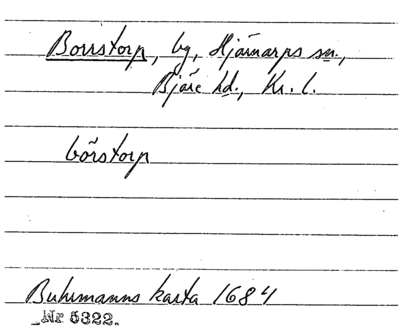 Borrstorp, by, Hjärnarps sn.,
Bjäre hd., Kr. l.
börstorp
Buhrmanns karta 1684
Nr 5322.